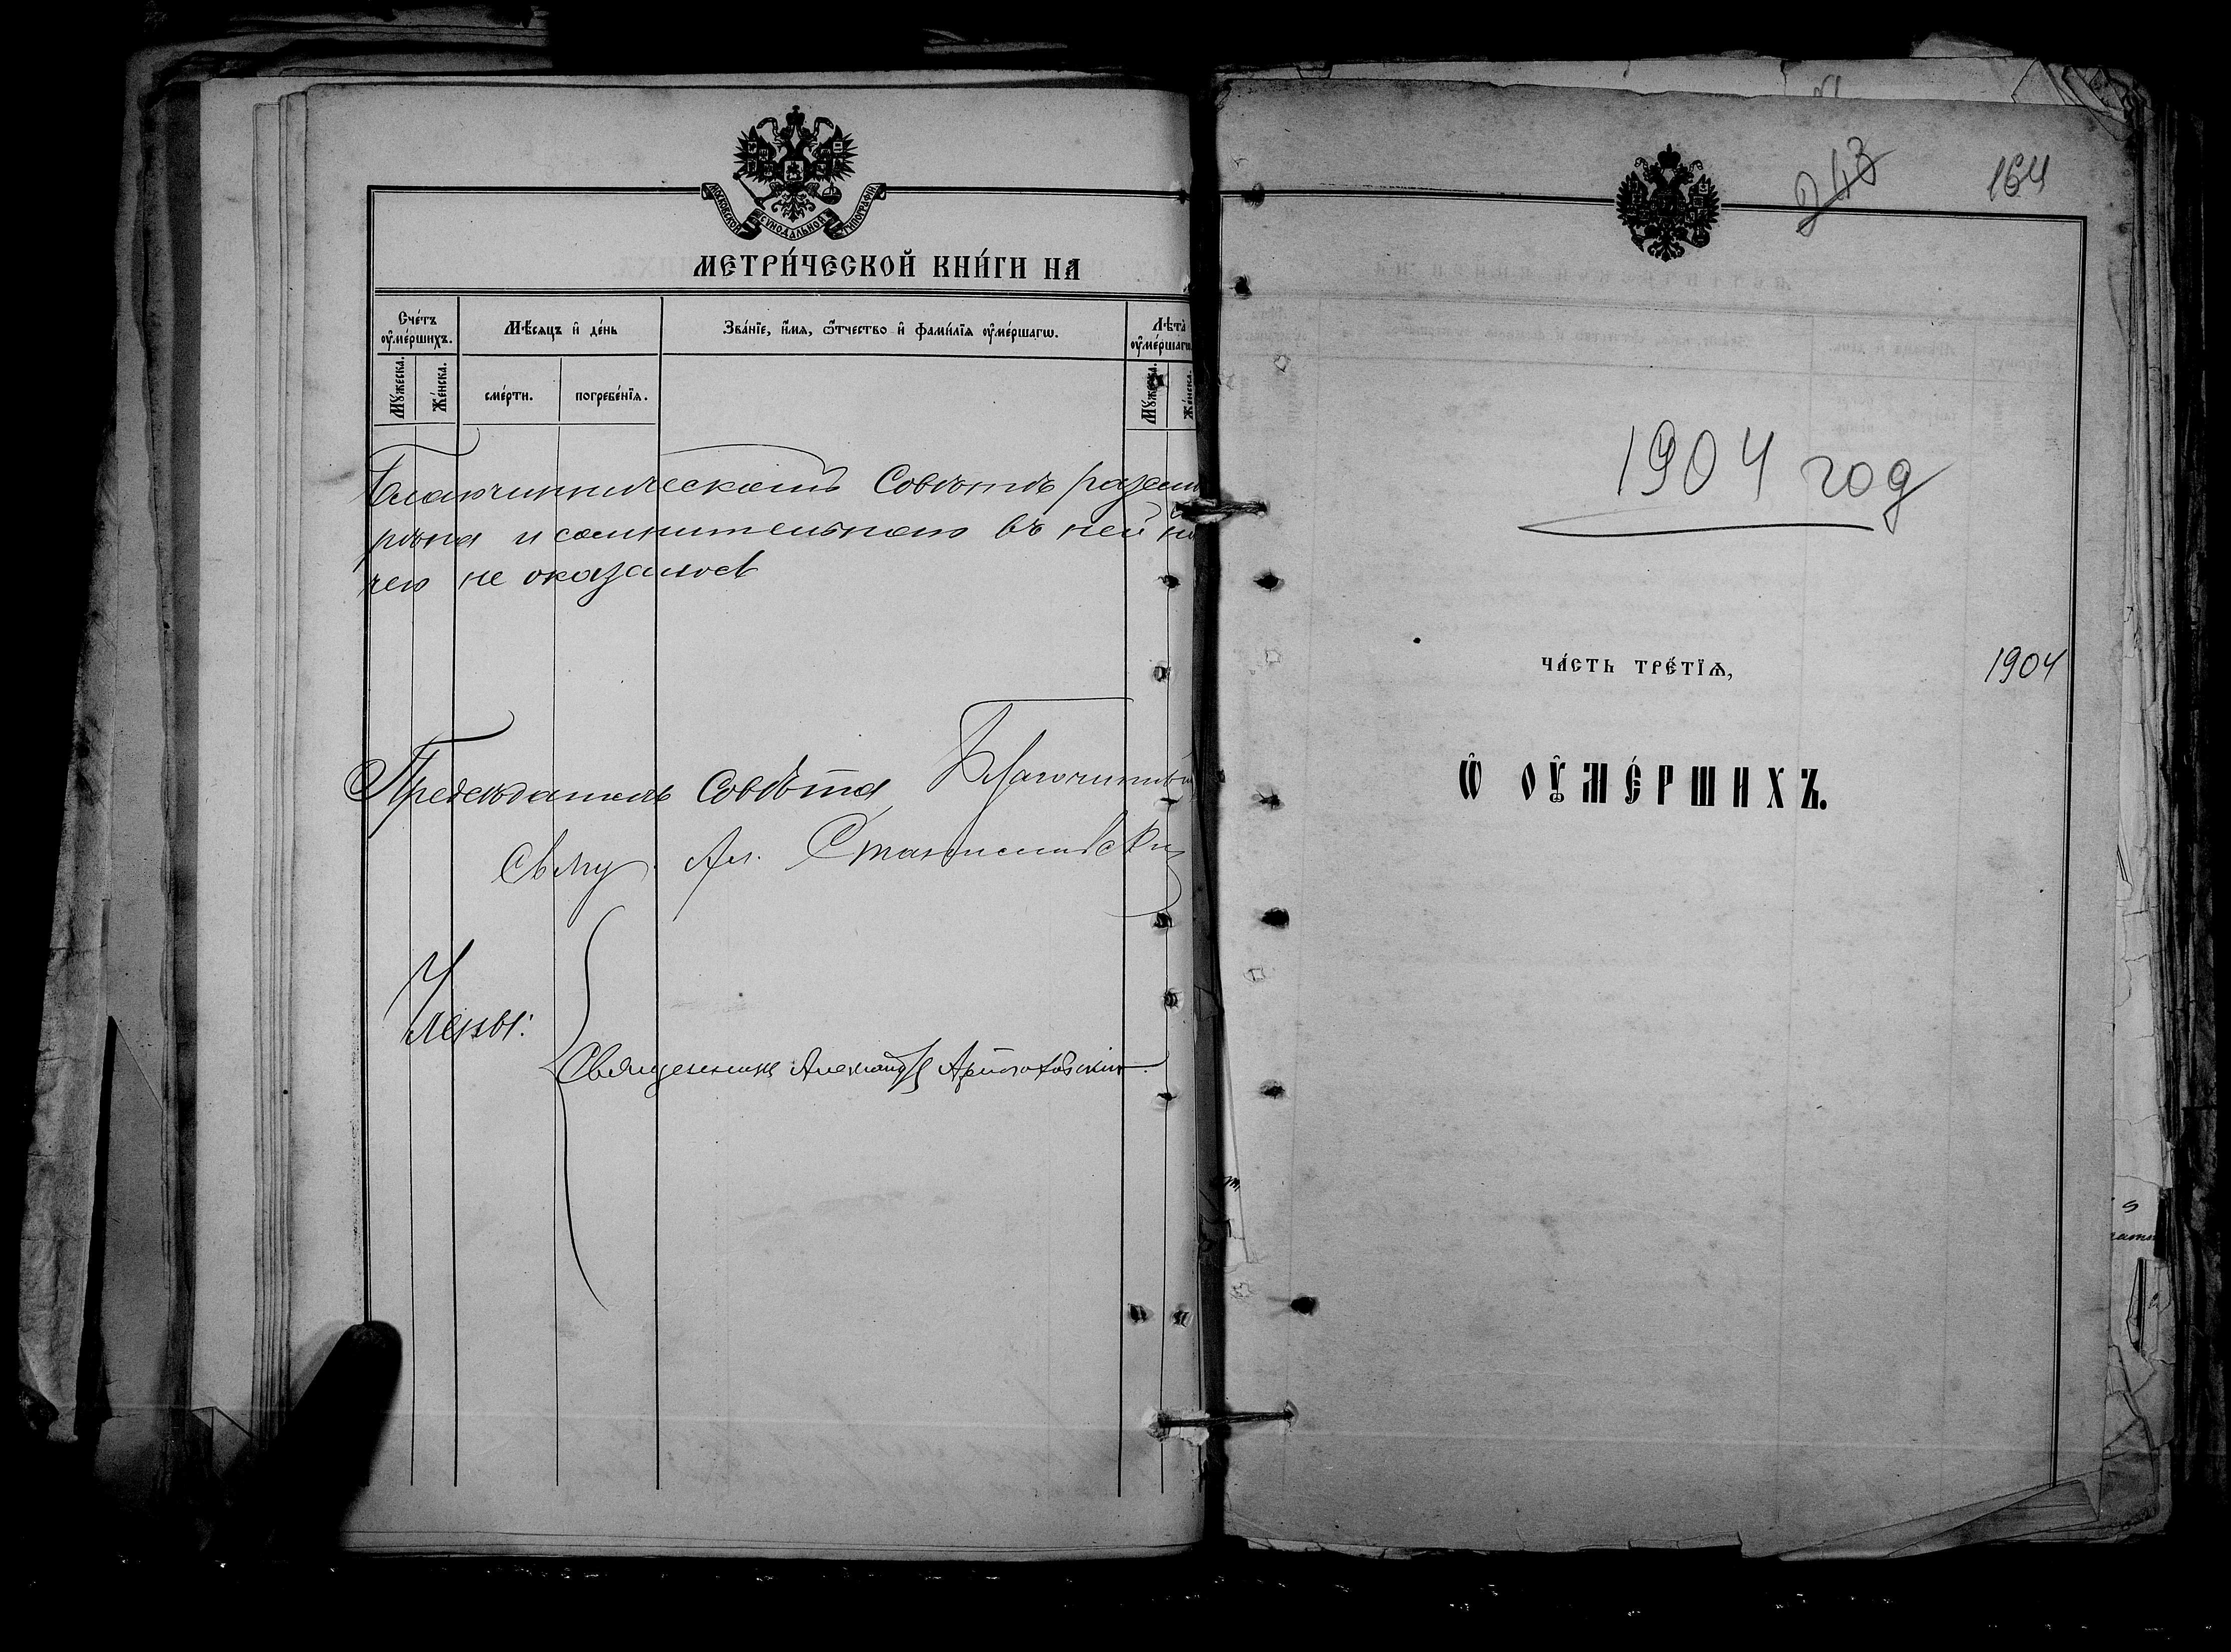 МОСКОВСКОЙ СѴНОДАЛЬНОЙ ТИПОГРАФІИ
МЕТРИ́ЧЕСКОЙ КНИ́ГИ НА
Сче́тъ ᲂу҆ме́ршихъ.
Мѣ́сяцъ и҆ де́нь
Зва́нїе, и҆́мя, ѻ҆́тчество и҆ фами́лїя ᲂу҆ме́ршагѡ.
Лѣ́та ᲂу҆ме́ршагѡ
Мꙋ́жеска.
Же́нска.
сме́рти.
погребе́нїѧ.
Мꙋ́жеска.
Же́нска.
Благочинническимъ Совѣтомъ разсмо
трѣна и сомнительнаго въ ней ни
чего не оказалось
Предсѣдатель Совѣта Благочинный
Свящ. Ал. Станиславскій
Члены:
Священникъ Александръ
243
164
1904 год
ЧА́СТЬ ТРЕ́ТЇѦ,
1904
Ѡ҆ ОУ҆МЕ́РШИХЪ.